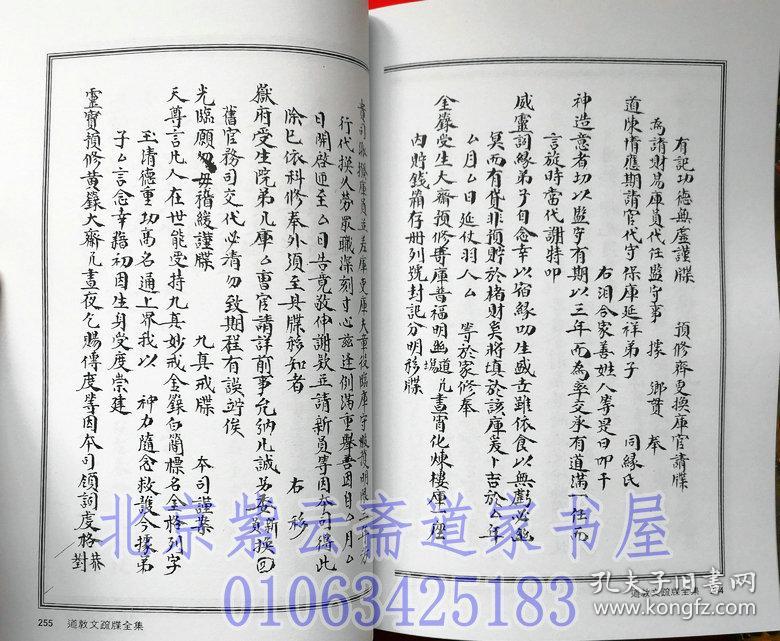 有記功德無虛謹牒　預修齋更換庫官請牒
為請財易庫員代任監守事　據　鄉貫　奉
道陳情應期請官代守保庫延祥弟子　同緣氏
右洎合家善姓人等是日叩干
神造意者切以監守有期以三年而為率交承有道滿一任而
言旋時當代謝特叩
威靈詞緣弟子自念幸以宿緣叨生盛立雖依食以無虧必幽
冥而有貸非預貯於楮財奚將填於該庫爰卜吉於厶年
厶月厶日延仗羽人厶　等於家修奉
金籙受生大齋預修專庫普福明幽道場凡晝宵化煉樓庫一座
內貯錢箱存册列號封記分明移牒
行代換久勞眾職深刻寸心茲逢例滿重舉善因日厶月厶
日開啟迎至厶日告竟敬伸謝欵並請新員等因本司得此
除已依科修奉外須至具牒移知者　右移
嶽府受生院第几庫厶曹官請詳前事允納凡誠另委新員換回
舊官務司交代必清勿致期程有誤竚俟
光臨願勿毋稽緩謹牒　九真戒牒　本司謹案
天尊言凡人在世能受持九真妙戒金籙白簡標名金格列字
玉清德重功高名通上界我以　神力隨念救護今據弟
子厶言念幸藉初因生身受度崇建
靈寶預修黃籙大齋几晝夜乞賜傳度等因本司領詞虔格恭對
255　道教文疏牒全集
道教文疏牒全集
北京紫云斋道家书屋
01063425183
孔夫子旧书网
www.kongfz.com